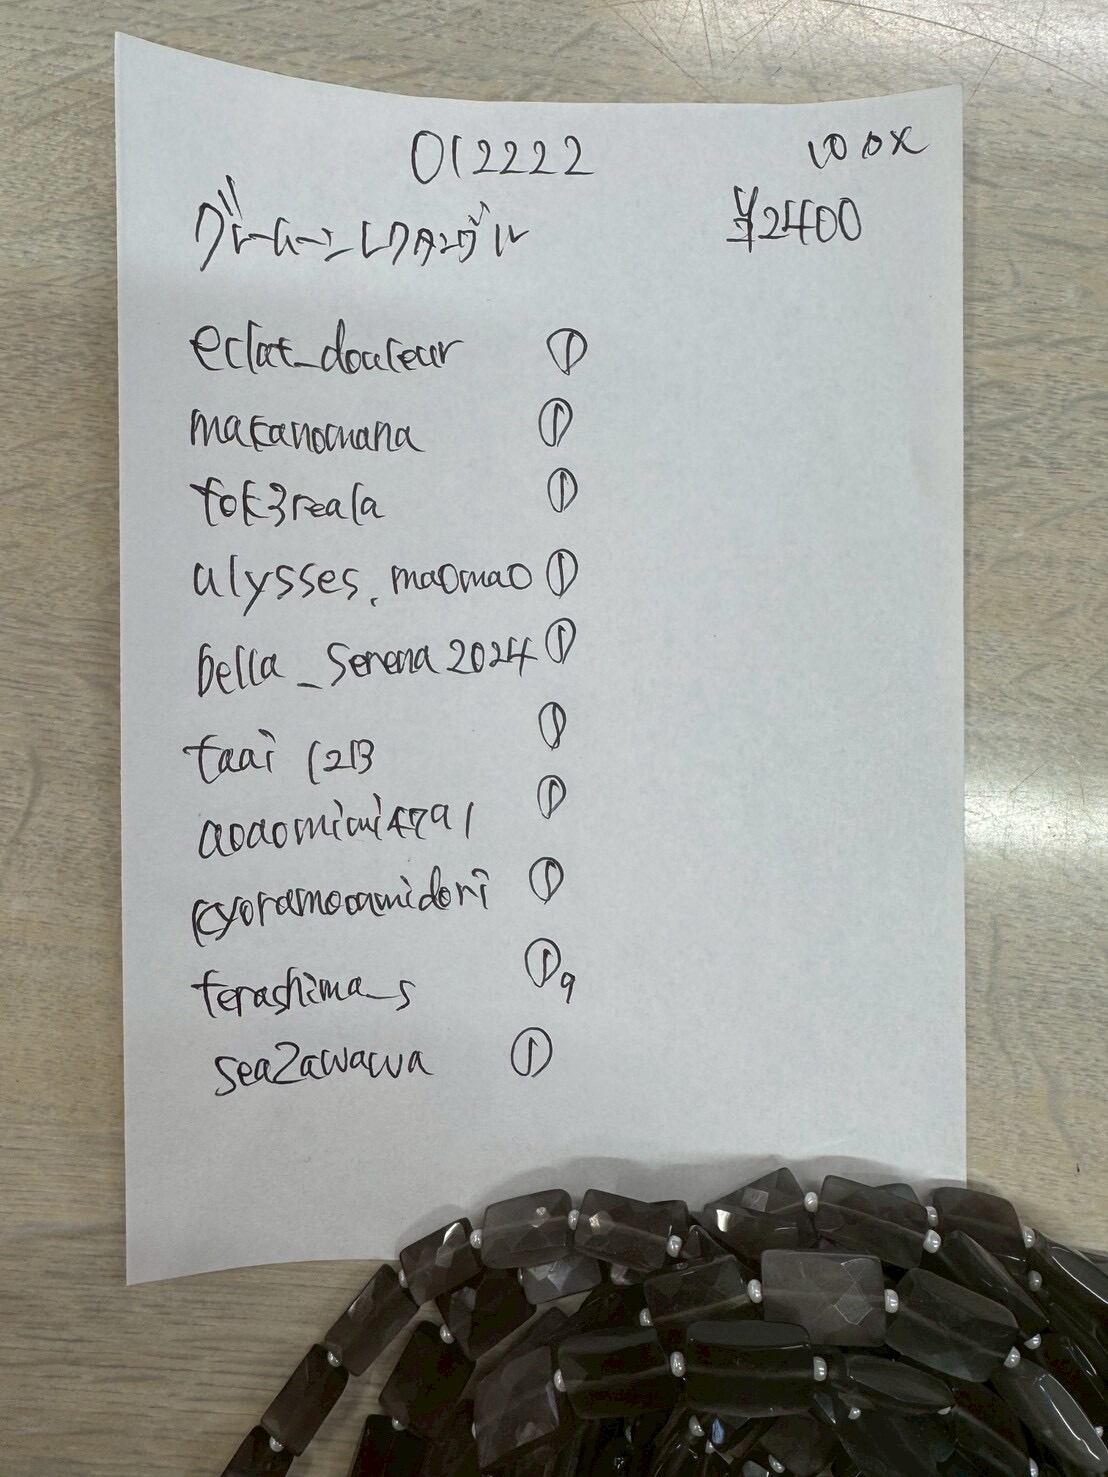 012222
¥2400
グレームーンレクタングル
eclat_douceur ①
makanomana ①
tok3reala ①
ulysses.maomao ①
bella_serena2024 ①
taai1213 ①
aoaomimi4791 ①
kyoramomamidori ①
terashima_s ① 9
seazawawa ①